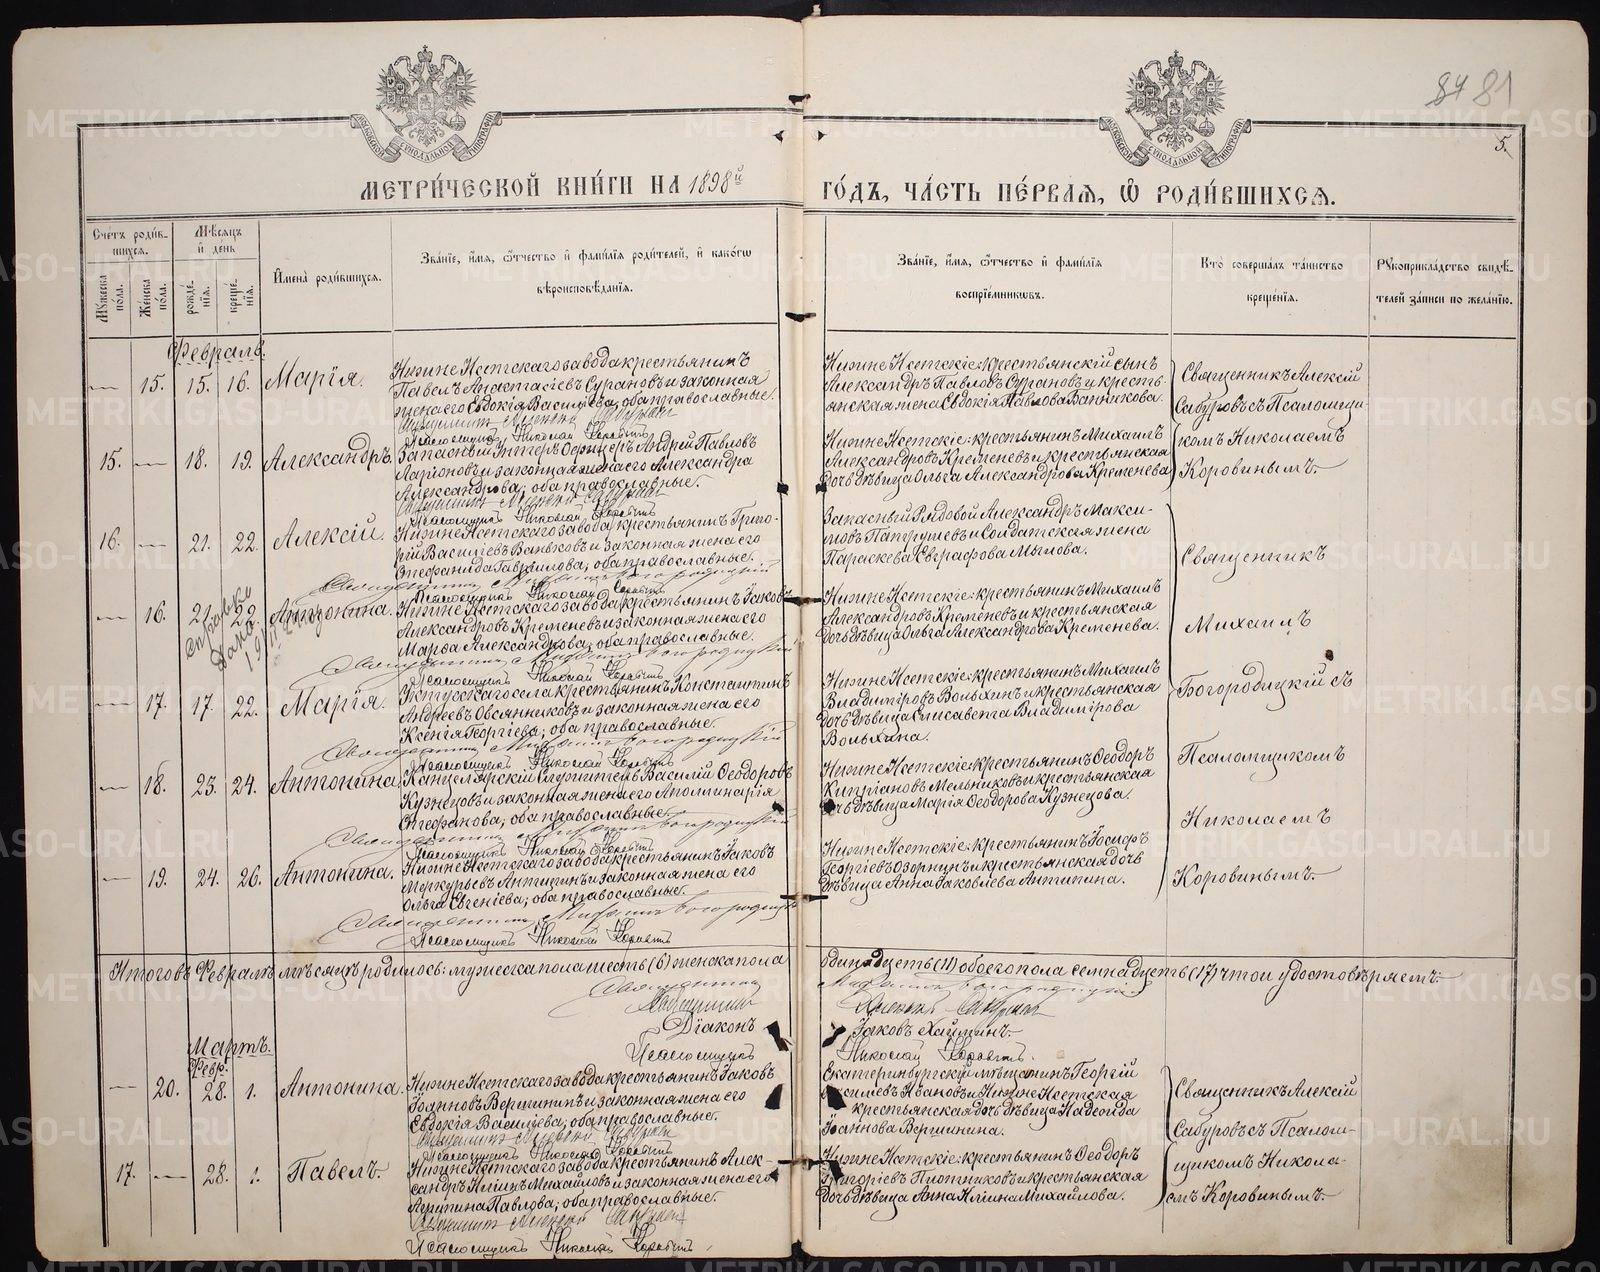 84 81
5.
МЕТРИ́ЧЕСКОЙ КНИ́ГИ НА 1898й
ГО́ДЪ, ЧА́СТЬ ПЕ́РВАѦ, Ѡ РОДИ́ВШИХСѦ.
Сче́тъ роди́в-
шихсѧ.
Мѣ́сѧцъ
и де́нь
Мꙋжеска по́ла.
Же́нска по́ла.
рожде́-
нїѧ.
креще́-
нїѧ.
Имена̀ роди́вшихсѧ.
Зва́нїе, и́мѧ, ѻ́тчество и фами́лїѧ роди́телей, и како́гѡ
вѣроисповѣ́данїѧ.
Зва́нїе, и́мѧ, ѻ́тчество и фами́лїѧ
воспрїе́мниковъ.
Кто̀ соверша́лъ та́инство
креще́нїѧ.
Рꙋкоприкла́дство свидѣ́-
телей за́писи по жела́нїю.
Февраль.
— 15. 15. 16. Марія.
Нижне Исетскаго завода крестьянинъ
Павелъ Анастасіевъ Сурановъ и законная
жена его Евдокія Василіева, оба православные.
Священникъ Алексій Сабуровъ
Псаломщикъ Николай Коровинъ
Нижне Исетскіе: крестьянскій сынъ
Александръ Павловъ Сурановъ и кресть-
янская жена Евдокія Павлова Банникова.
Священникъ Алексій
Сабуровъ съ Псаломщи-
комъ Николаемъ
Коровинымъ.
15. — 18. 19. Александръ.
Запасный Унтеръ Офицеръ Андрей Павловъ
Ларіоновъ и законная жена его Александра
Александрова; оба православные.
Священникъ Алексій Сабуровъ
Псаломщикъ Николай Коровинъ
Нижне Исетскіе: крестьянинъ Михаилъ
Александровъ Кременевъ и крестьянская
дочь дѣвица Ольга Александрова Кременева
16. — 21. 22. Алексій.
Нижне Исетскаго завода, крестьянинъ Григо-
рій Василіевъ Ваньковъ и законная жена его
Стефанида Гаврилова; оба православные.
Священникъ Михаилъ Богородицкій
Псаломщикъ Николай Коровинъ
Запасный Рядовой Александръ Макси-
мовъ Патрушевъ и Солдатская жена
Параскева Евграфова Мылова.
Священникъ
Михаилъ
Богородицкій съ
Псаломщикомъ
Николаемъ
Коровинымъ.
— 16. 21. 22. Антонина.
справка
дана
Нижне Исетскаго завода крестьянинъ Іаковъ
Александровъ Кременевъ и законная жена его
Марѳа Александрова; оба православные.
Священникъ Михаилъ Богородицкій
Псаломщикъ Николай Коровинъ
Нижне Исетскіе: крестьянинъ Михаилъ
Александровъ Кременевъ и крестьянская
дочь дѣвица Ольга Александрова Кременева.
— 17. 17. 22. Марія.
Уктусскаго села крестьянинъ Константинъ
Андреевъ Овсянниковъ и законная жена его
Ксенія Георгіева; оба православные.
Священникъ Михаилъ Богородицкій
Псаломщикъ Николай Коровинъ
Нижне Исетскіе: крестьянинъ Михаилъ
Владиміровъ Волыхинъ и крестьянская
дочь дѣвица Елисавета Владимірова
Волыхина.
— 18. 23. 24. Антонина.
Канцелярскій Служитель Василій Ѳеодоровъ
Кузнецовъ и законная жена его Аполлинарія
Стефанова; оба православные.
Священникъ Михаилъ Богородицкій
Псаломщикъ Николай Коровинъ
Нижне Исетскіе: крестьянинъ Ѳеодоръ
Кипріановъ Мельниковъ и крестьянская
дочь дѣвица Марія Ѳеодорова Кузнецова.
— 19. 24. 26. Антонина.
Нижне Исетскаго завода крестьянинъ Іаковъ
Меркурьевъ Антипинъ и законная жена его
Ольга Евгеніева; оба православные.
Священникъ Михаилъ Богородицкій
Псаломщикъ Николай Коровинъ
Нижне Исетскіе: крестьянинъ Іосифъ
Георгіевъ Озорнинъ и крестьянская дочь
дѣвица Анна Іаковлева Антипина.
Итого въ Февралѣ мѣсяцѣ родилось: мужеска пола шесть (6) женска пола
одинадцеть (11) обоего пола семнадцеть (17) что и удостовѣряемъ.
Священникъ Михаилъ Богородицкій
Священникъ Алексій Сабуровъ
Діаконъ Іаковъ Хаймінъ.
Псаломщикъ Николай Коровинъ.
Мартъ.
Февр.
— 20. 28. 1. Антонина.
Нижне Исетскаго завода крестьянинъ Іаковъ
Іоанновъ Вершининъ и законная жена его
Евдокія Василіева; оба православные.
Священникъ Алексій Сабуровъ
Псаломщикъ Николай Коровинъ
Екатеринбургскій мѣщанинъ Георгій
Василіевъ Ивановъ и Нижне Исетская
крестьянская дочь дѣвица Надежда
Іоаннова Вершинина.
Священникъ Алексій
Сабуровъ съ Псалом-
щикомъ Никола-
емъ Коровинымъ.
17. — 28. 1. Павелъ.
Нижне Исетскаго завода крестьянинъ Алек-
сандръ Иліинъ Михайловъ и законная жена его
Агрипина Павлова; оба православные.
Священникъ Алексій Сабуровъ
Псаломщикъ Николай Коровинъ.
Нижне Исетскіе: крестьянинъ Ѳеодоръ
Григоріевъ Плотниковъ и крестьянская
дочь дѣвица Анна Иліина Михайлова.
METRIKI.GASO-URAL.RU